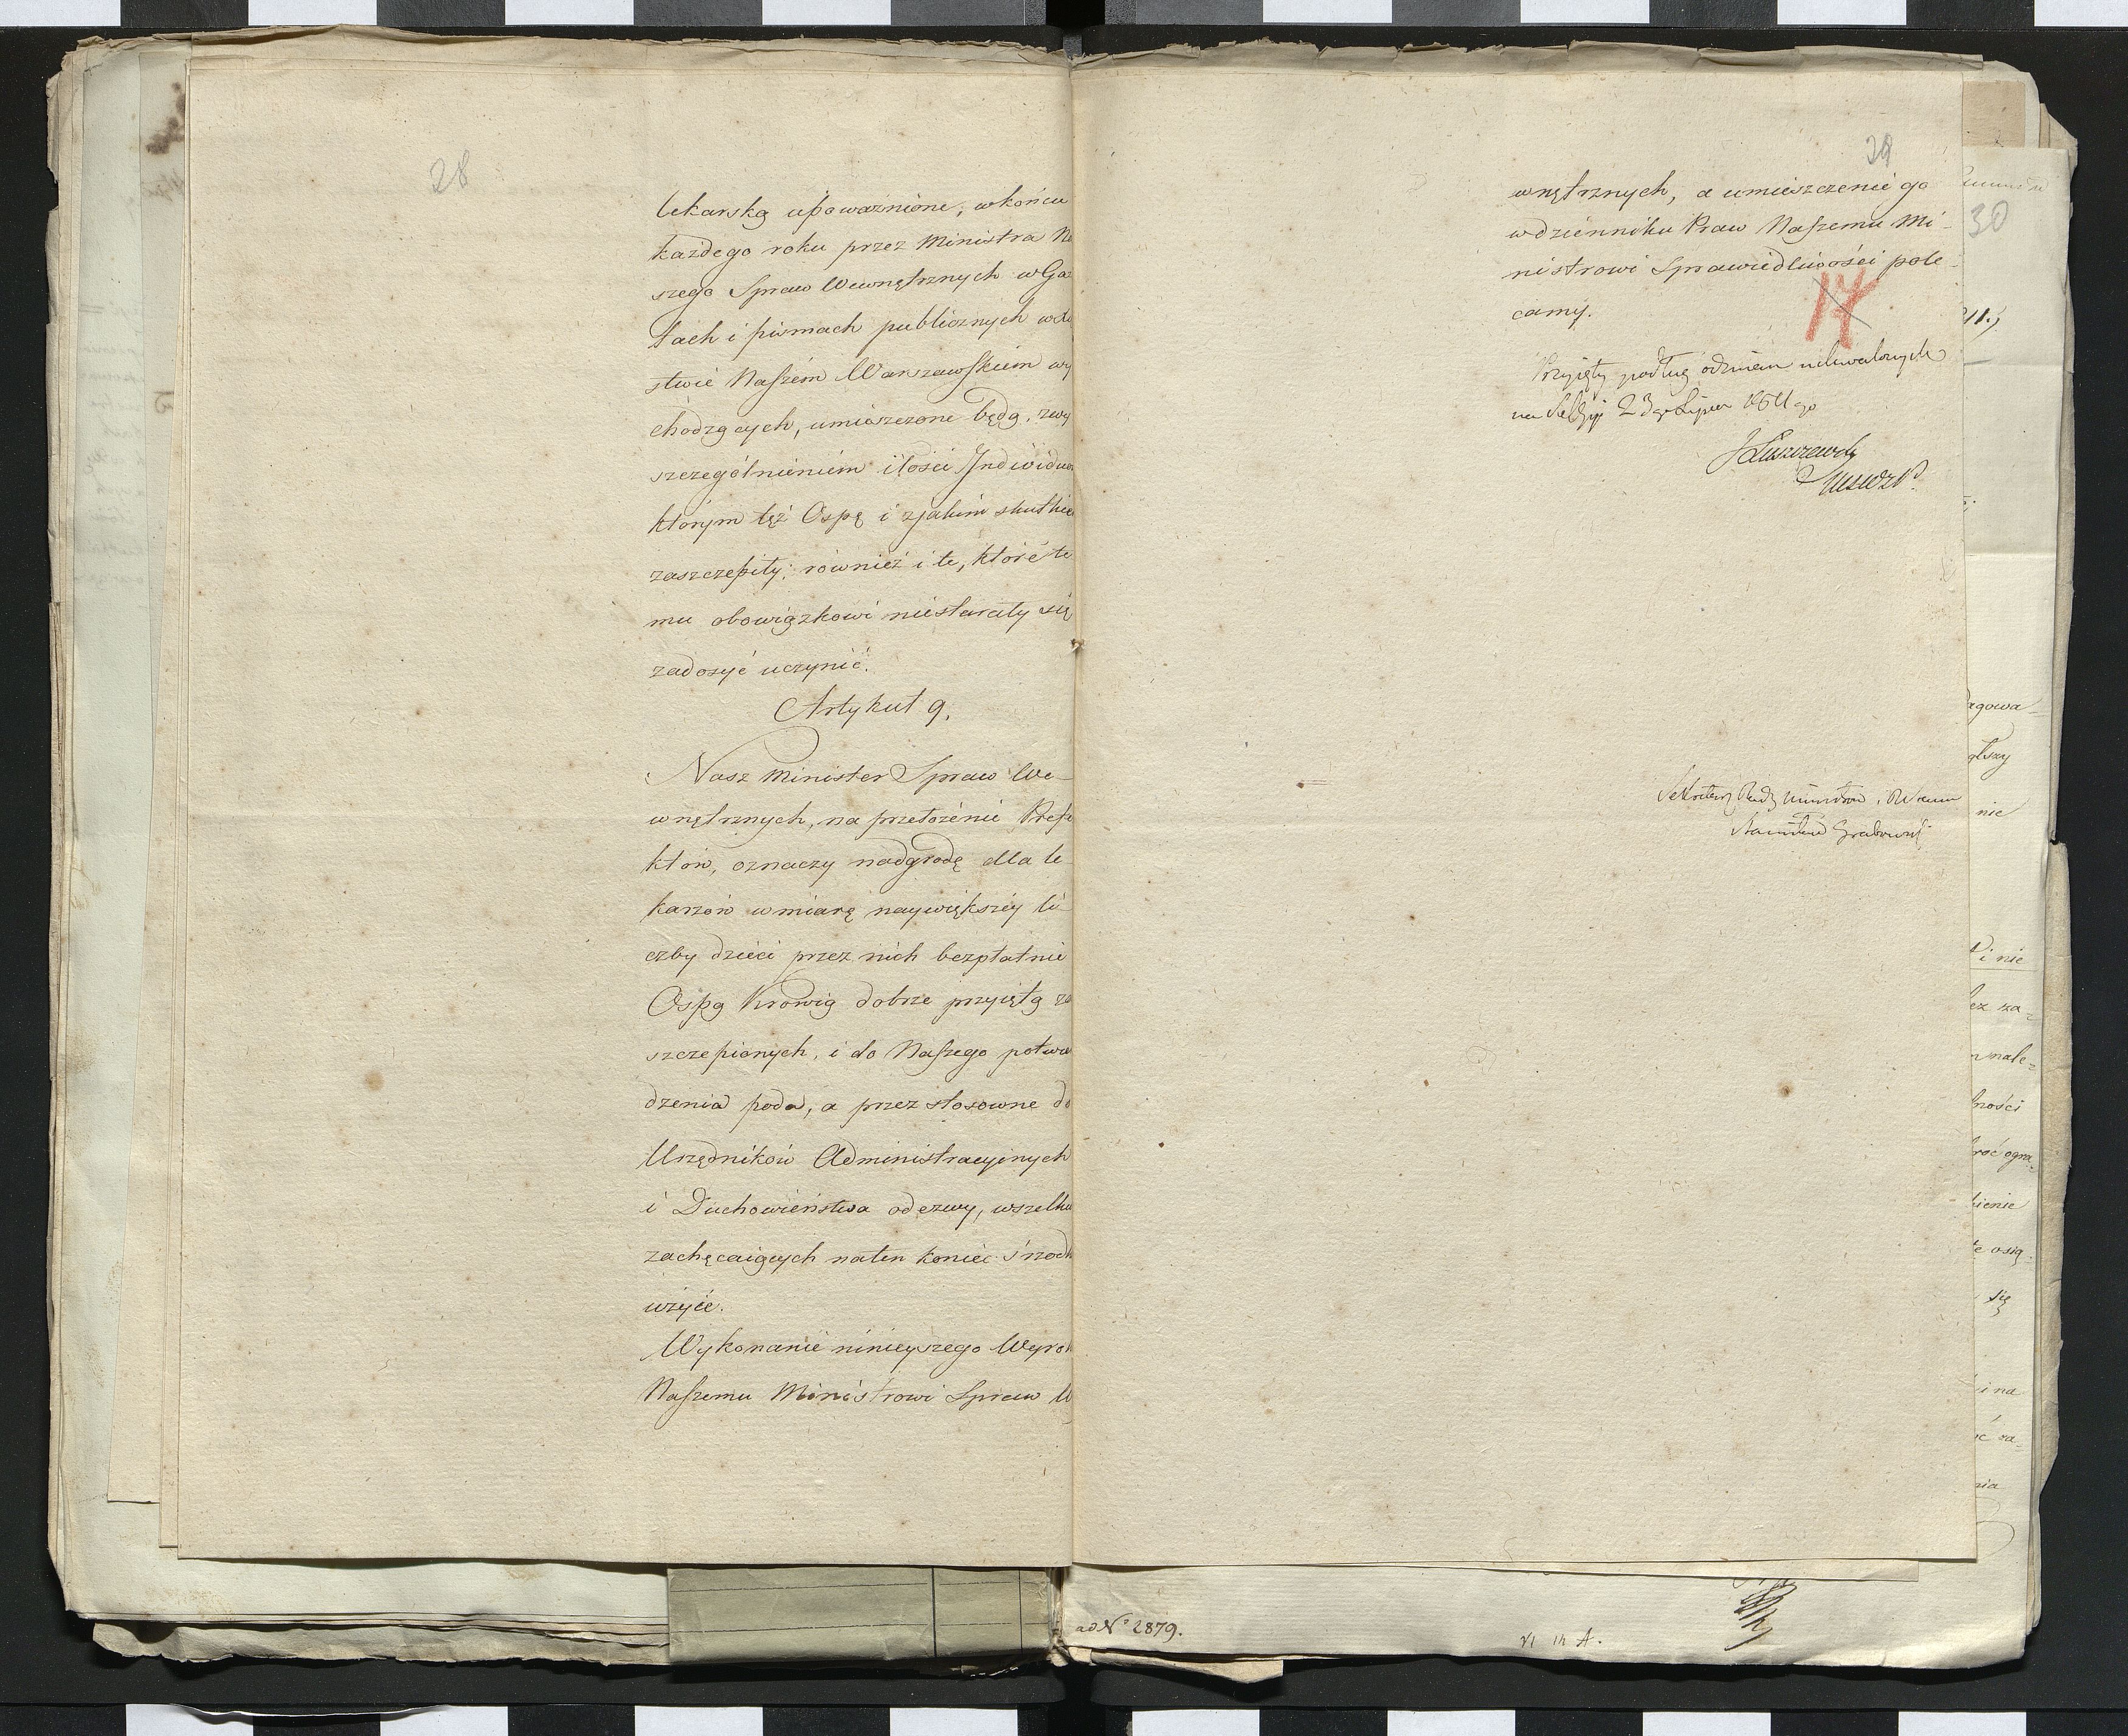 28
lekarską upoważnione, wkońcu
każdego roku przez Ministra Na
szego Spraw Wewnętrznych w Ga
tach i pismach publicznych w
stwie Naszém Warszawskiém wy
chodzących, umieszczone będą, zwy
szczególnieniém ilości Indwidu
którym tęż Ospę i zjakim skutkie
zaszczepiły; również i te, które te
mu obowiązkowi niestarały się
zadosyć uczynić.
Artykuł 9.
Nasz Minister Spraw We-
wnętrznych, na przełożenie Prefe
któw, oznaczy nadgrodę dla le
karzów wmiarę naywiększéy li
czby dzieci przez nich bezpłatnie
Ospą Krowią dobrze przyiętą za
szczepionych, i do Naszego potwier
dzenia poda, a przez stosowne do
Urzędników Administracyinych
i Duchowieństwa odezwy, wszelki
zachęcaiących naten koniec śrzod
użyie.
Wykonanie ninieyszego Wyrok
Naszemu Ministrowi Spraw W
29
wnętrznych, a umieszczenie go
wdzienniku Praw Naszemu Mi-
nistrowi Sprawiedliwości pole-
camy.
14
Przyięty podług odmian uchwalonych
na Sessyi 23go Lipca 1811go
JŁuszczewski
Sekretarz Rady Ministrów i R Stanu
Stanisław Grabowski
30
11.
agowa
nie
i nie
ez za-
nale-
ności
roć ogra-
ienie
te osią-
się
i na
ć za-
nia
ad N° 2879.
VI 1h A.